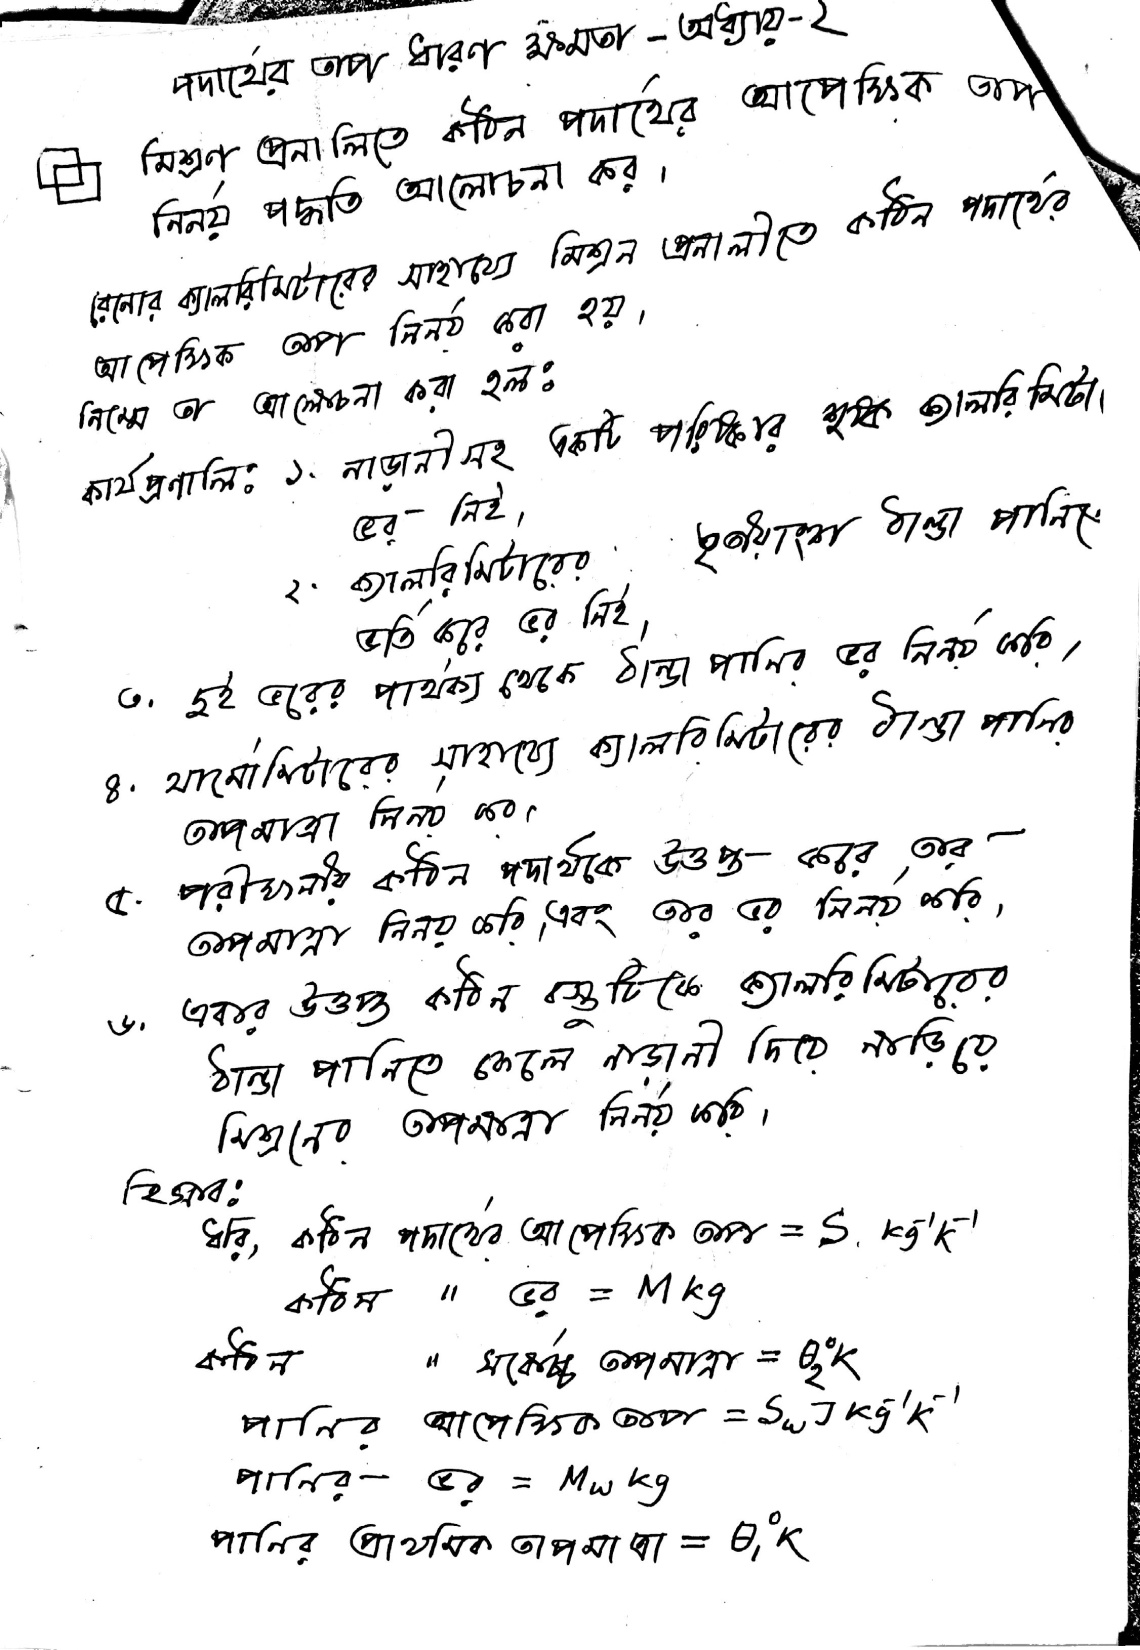 পদার্থের তাপ ধারণ ক্ষমতা - অধ্যায়-২
মিশ্রণ প্রনালিতে কঠিন পদার্থের আপেক্ষিক তাপ
নিনর্য় পদ্ধতি আলোচনা কর।
রেনোর ক্যালরিমিটারের সাহায্যে মিশ্রন প্রনালীতে কঠিন পদার্থের
আপেক্ষিক তাপ নিনর্য় করা হয়।
নিম্মে তা আলোচনা করা হলঃ
কার্যপ্রণালিঃ ১. নাড়ানীসহ একটি পরিষ্কার শুষ্ক ক্যালরিমিটা।
ভর নিই।
২. ক্যালরিমিটারের তৃতীয়াংশ ঠান্ডা পানিতে
ভর্তি করে ভর নিই,
৩. দুই ভরের পার্থক্য থেকে ঠান্ডা পানির ভর নিনর্য় করি,
৪. থার্মোমিটারের সাহায্যে ক্যালরিমিটারের ঠান্ডা পানির
তাপমাত্রা নিনর্য় কর।
৫. পরীক্ষনীয় কঠিন পদার্থকে উত্তপ্ত করে তার
তাপমাত্রা নিনর্য় করি, এবং তার ভর নিনর্য় করি,
৬. এবার উত্তপ্ত কঠিন বস্তুটিকে ক্যালরিমিটারের
ঠান্ডা পানিতে ফেলে নাড়ানী দিয়ে নাড়িয়ে
মিশ্রনের তাপমাত্রা নিনর্য় করি।
হিসাবঃ
ধরি, কঠিন পদার্থের আপেক্ষিক তাপ = S. kg⁻¹k⁻¹
কঠিন " ভর = M kg
কঠিন " সর্বোচ্চ তাপমাত্রা = θ₂°K
পানির আপেক্ষিক তাপ = Sω J kg⁻¹k⁻¹
পানির ভর = Mω kg
পানির প্রাথমিক তাপমাত্রা = θ₁°K